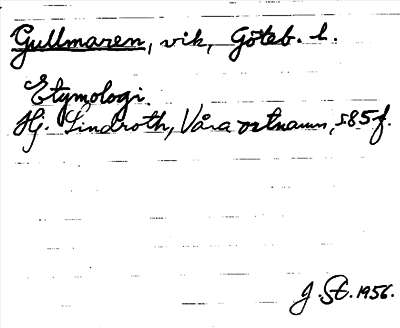 Gullmaren, vik, Göteb. l.
Etymologi.
Hj. Lindroth, Våra ortnamn, s. 85 f.
J. St. 1956.